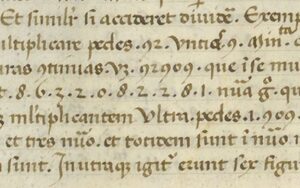 Et simili si accideret diuide. Exemp
ultiplicare pedes .92. Vntias .9. Min
uras 9tinuas. vz. 92909. que i se mu
t. 8. 6. 3. 2. 0. 8. 2. 2. 8. 1. nũa qu
mltiplicantem Vltra. pedes. 1. 909.
et tres nũo. et totidem sunt i nũo
sunt. In utraque igit erunt sex figu